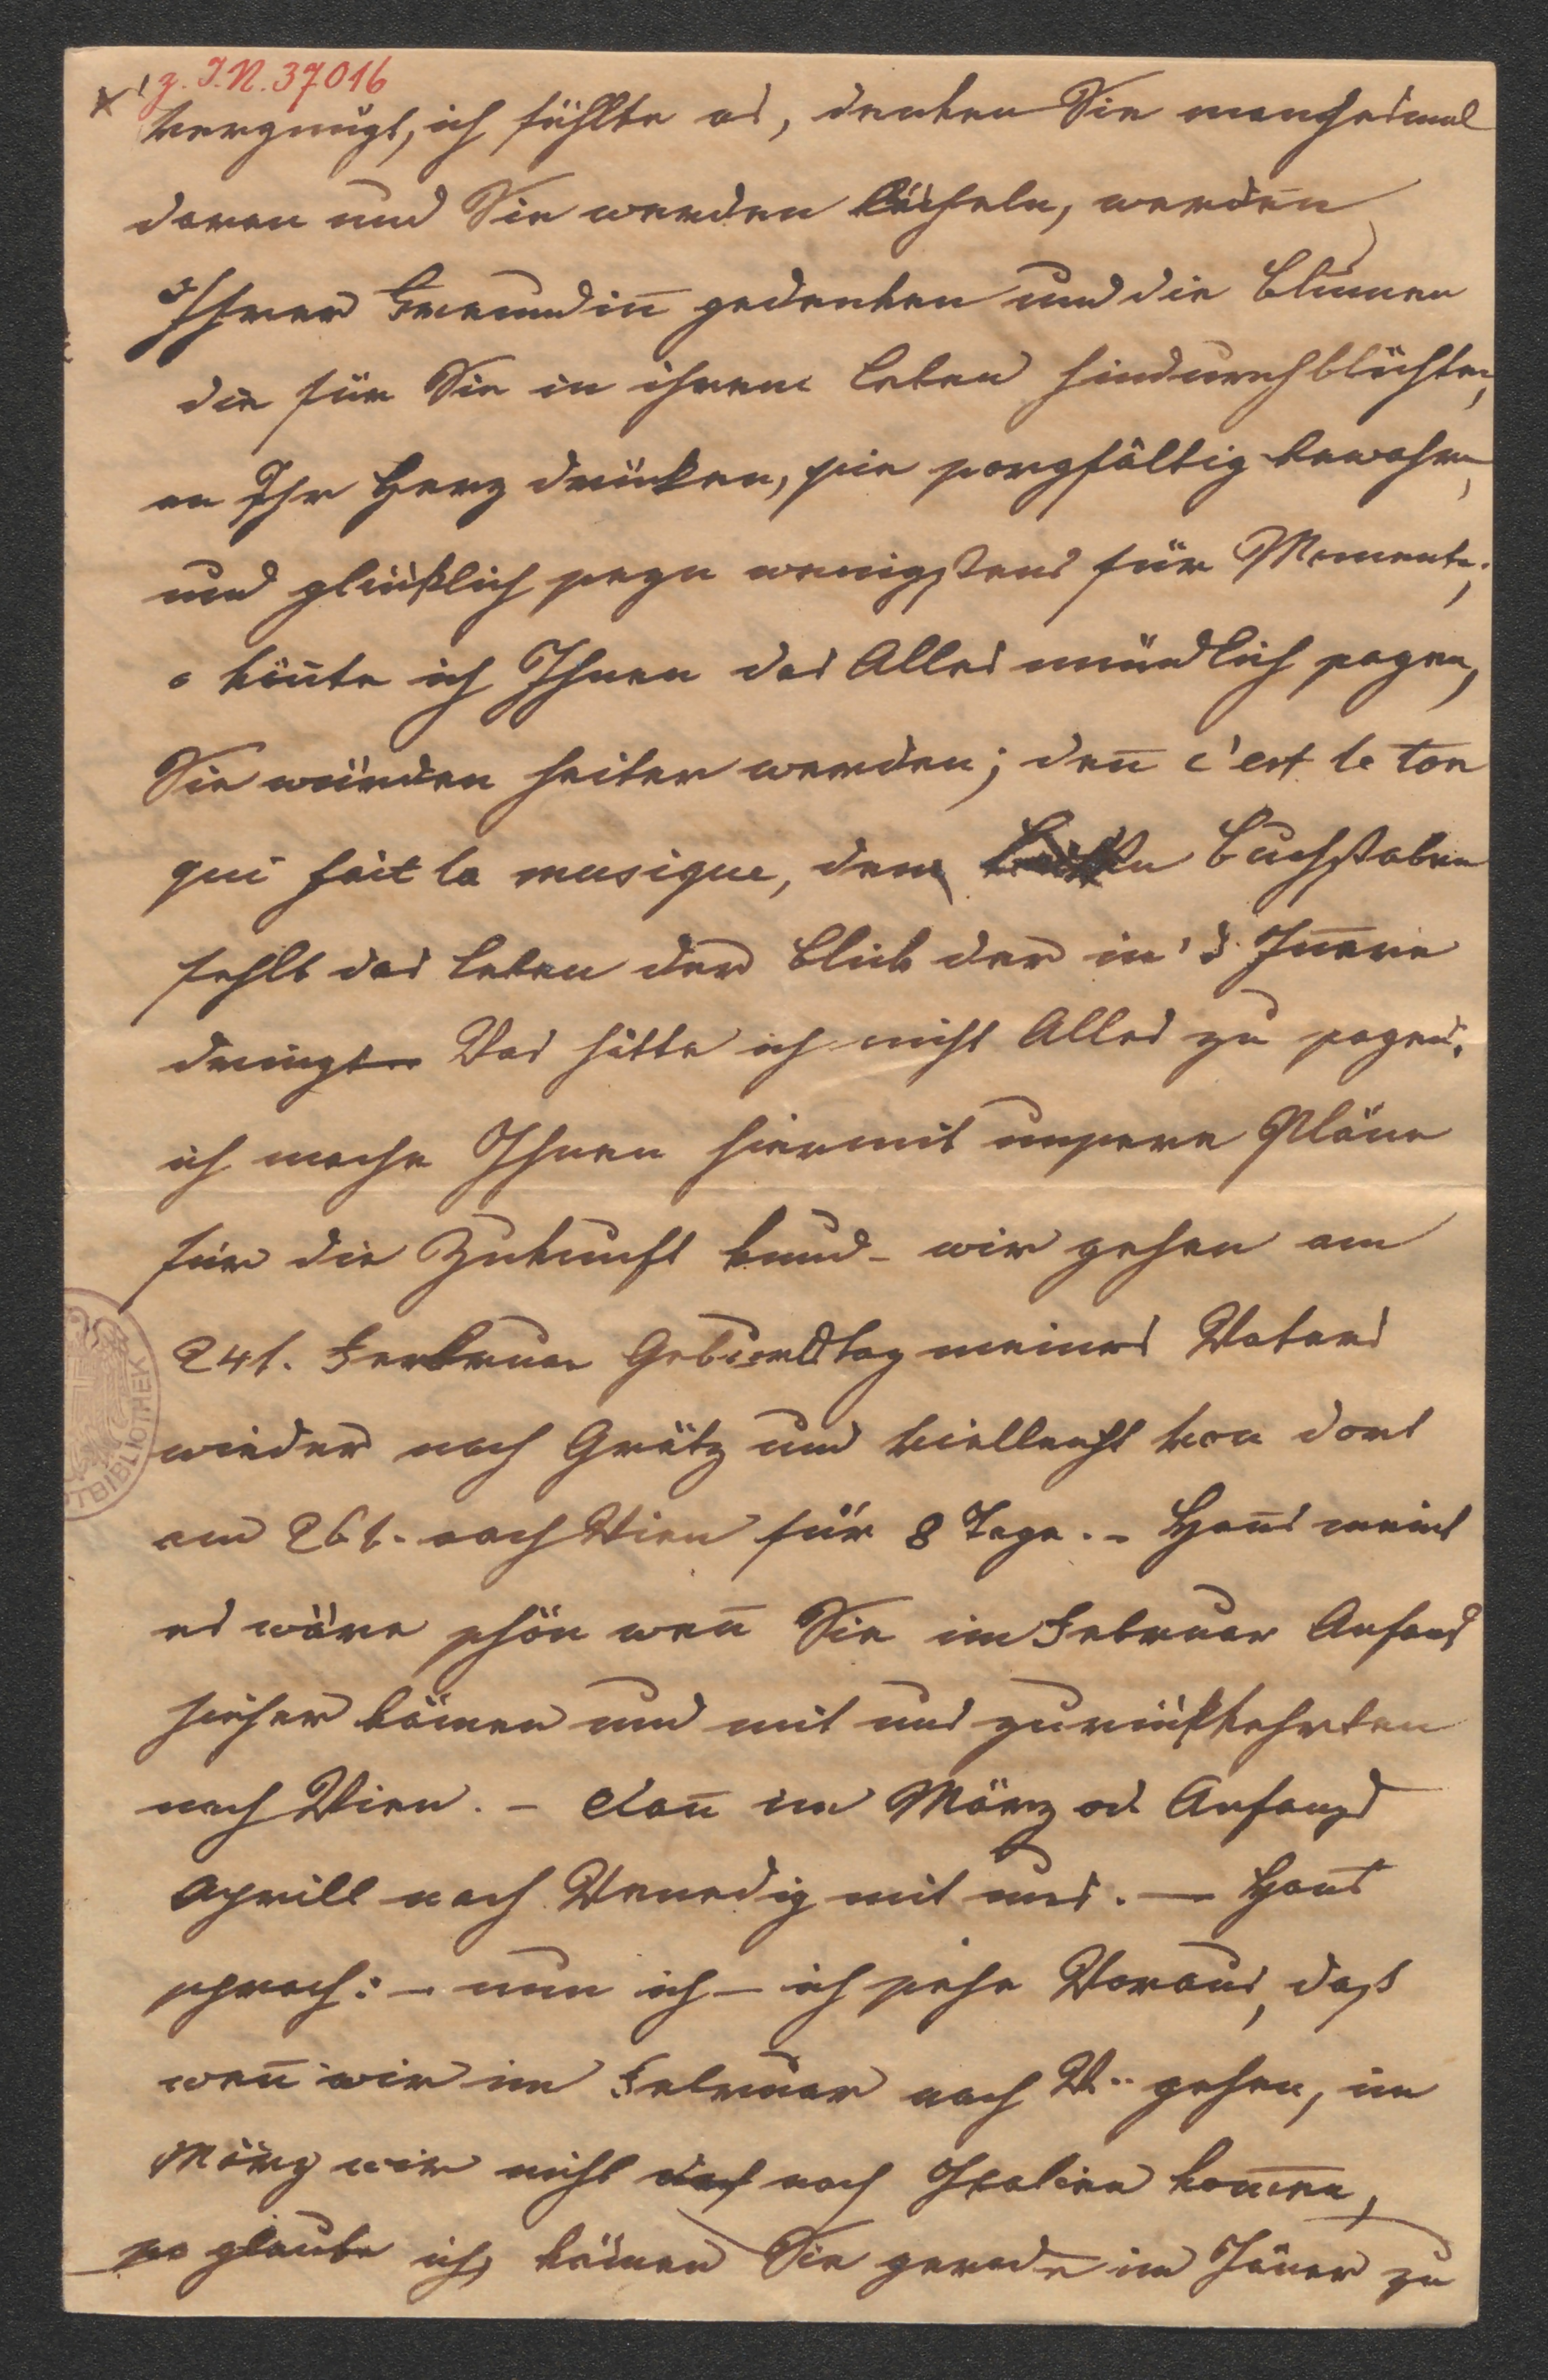 z. I.N. 37016
vergnügt, ich fühlte es, denken Sie manchesmal
daran und Sie werden lächeln, werden
Ihrer Freundin̄ gedenken und die Blumen
die für Sie in ihrem Leben hindurchblühten,
an Ihr Herz drücken, sie sorgfältig bewahren,
und glücklich seyn wenigstens für Momente;
o kön̄te ich Ihnen das Alles mündlich sagen,
Sie würden heiter werden; den̄ c'est le ton
qui fait la musique, dem Buchstaben
fehlt das Leben der Blick der in's In̄ere
dringt – Was hätte ich nicht Alles zu sagen.
ich mache Ihnen hiermit unsere Pläne
für die Zukunft kund – wir gehen am
24t. Ferbruar Geburdstag meines Vaters
wieder nach Grätz und vielleicht von dort
am 26t. nach Wien für 8 Tage. – Hans meint
es wäre schön wen̄ Sie im Februar Anfangs
hieher kämen und mit uns zurückkehrten
nach Wien. – dan̄ im März od. Anfangs
Aprill nach Venedig mit uns. – Hans
sprach: – nun ich – ich sehe Voraus, daß
wen̄ wir im Februar nach W.. gehen, im
März wir nicht nach Italien kom̄en,
so glaube ich, kämen Sie gerade im Jäner zu
TBIBLIOTHEK